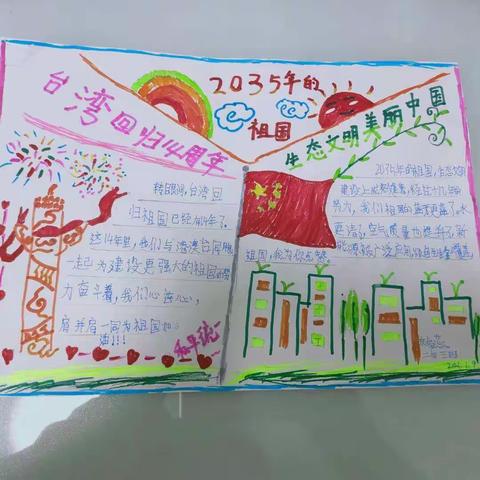 2035年的
祖国
台湾回归14周年
转眼间,台湾回
归祖国已经有14年了。
这14年里,我们与港澳台同胞
一起为建设更强大的祖国而努
力奋斗着,我们心连心,
肩并肩一同为祖国加
油!!!
和平统一
生态文明美丽中国
2035年的祖国,生态文明
建设上成果
努力,我们祖国的蓝了更蓝了。水
更清,空气质量也提升了,新
能源被广泛应用,
祖国,我为你点赞
二年三班